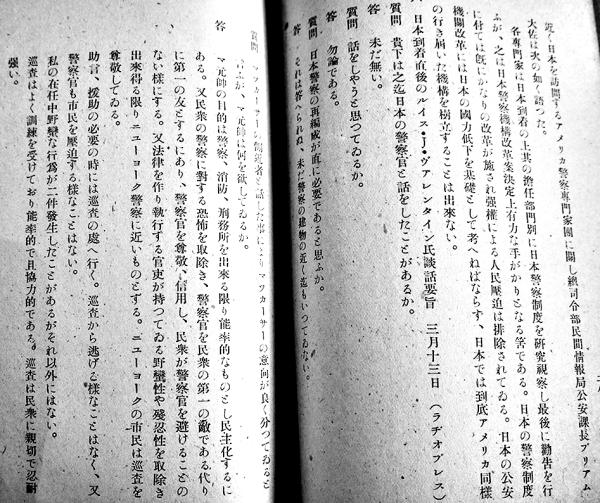 近く日本を訪問するアメリカ警察專門家團に關し總司令部民間情報局公安課長プリアム
大佐は次の如く語つた。
各專門家は日本到着の上其の擔任部門別に日本警察制度を研究視察し最後に勸告を行
ふが、之は日本警察機構改革案決定上有力な手がかりとなる筈である。日本の警察制度
に付ては既にかなりの改革が施され强權による人民壓迫は排除されてゐる。日本の公安
機關改革には日本の國力低下を基礎として考へねばならず、日本では到底アメリカ同樣
の行き届いた機構を樹立することは出來ない。
日本到着直後のルイス・J・ヴアレンタイン氏談話要旨 三月十三日 (ラヂオプレス)
質問 貴下は之迄日本の警察官と話をしたことがあるか。
答 未だ無い。
質問 話をしやうと思つてゐるか。
答 勿論である。
質問 日本警察の再編成が直に必要であると思ふか。
答 それは答へられぬ、未だ警察の建物の近く迄もいつてゐない。
質問 マツカーサーの
意向が良く分つてゐると
言ふが、マ元帥は何を欲してゐるか。
答 マ元帥の目的は警察、消防、刑務所を出來る限り能率的なものとし民主化するに
ある。又民衆の警察に對する恐怖を取除き、警察官を民衆の第一の敵である代り
に第一の友とするにあり、警察官を尊敬、信用し、民衆が警察官を避けることの
ない樣にする。又法律を作り執行する官吏が持つてゐる野蠻性や殘忍性を取除き
出來得る限りニユーヨーク警察に近いものとする。ニユーヨークの市民は巡査を
尊敬してゐる。
助言、援助の必要の時には巡査の處へ行く。巡査から逃げる樣なことはなく、又
警察官も市民を壓迫する樣なことはない。
私の在任中野蠻な行爲が二件發生したことがあるがそれ以外にはない。
巡査はよく訓練を受けており能率的で且協力的である。巡査は民衆に親切で忍耐
强い。